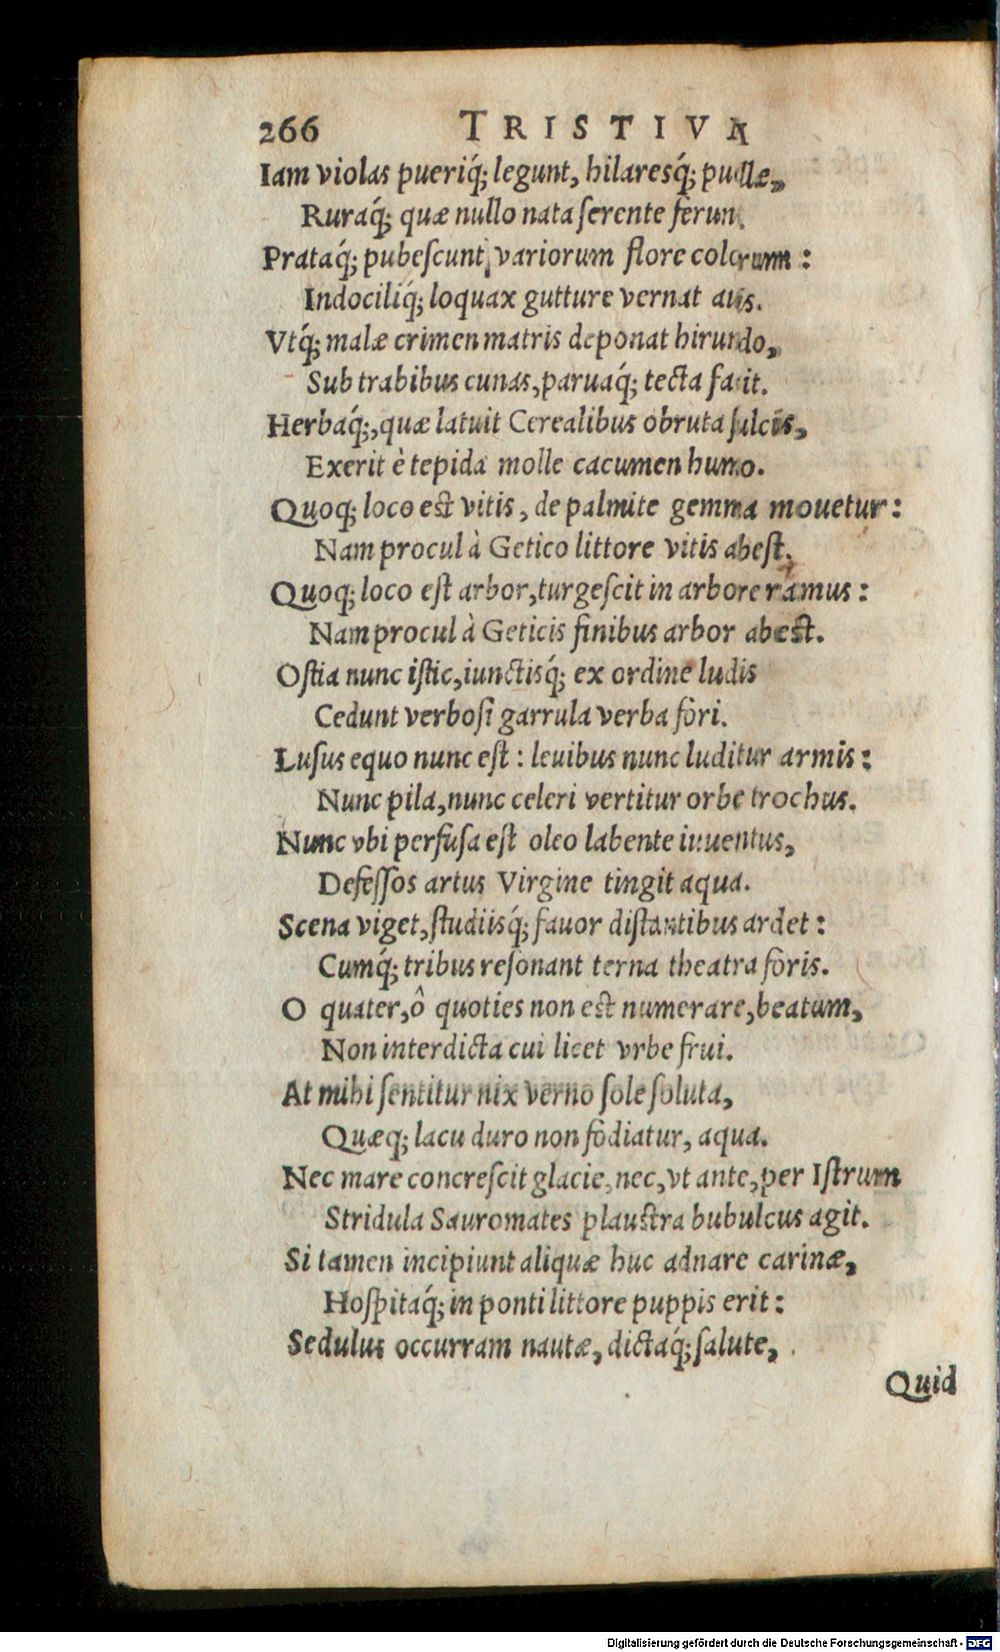 266 TRISTIVM
Iam violas pueriq́; legunt, hilaresq́; puellæ,
Ruraq́; quæ nullo nata ſerente ferun.
Prataq́; pubeſcunt variorum flore colorum :
Indociliq́; loquax gutture vernat auis.
Vtq́; malæ crimen matris deponat hirundo,
Sub trabibus cunas, paruaq́; tecta facit.
Herbaq́;, quæ latuit Cerealibus obruta ſulcis,
Exerit è tepida molle cacumen humo.
Quoq; loco est vitis, de palmite gemma mouetur :
Nam procul à Getico littore vitis abeſt.
Quoq; loco eſt arbor, turgeſcit in arbore ramus :
Nam procul à Geticis finibus arbor abest.
Oſtia nunc iſtic, iunctisq́; ex ordine ludis
Cedunt verboſi garrula verba fori.
Luſus equo nunc eſt : leuibus nunc luditur armis :
Nunc pila, nunc celeri vertitur orbe trochus.
Nunc vbi perfuſa eſt oleo labente iuuentus,
Defeſſos artus Virgine tingit aqua.
Scena viget, ſtudiisq́; fauor diſtantibus ardet :
Cumq́; tribus reſonant terna theatra foris.
O quater, ô quoties non est numerare, beatum,
Non interdicta cui licet vrbe frui.
At mihi ſentitur nix verno ſole ſoluta,
Quæq; lacu duro non fodiatur, aqua.
Nec mare concreſcit glacie, nec, vt ante, per Iſtrum
Stridula Sauromates plaustra bubulcus agit.
Si tamen incipiunt aliquæ huc adnare carinæ,
Hoſpitaq́; in ponti littore puppis erit :
Sedulus occurram nautæ, dictaq́; ſalute,
Quid
Digitalisierung gefördert durch die Deutsche Forschungsgemeinschaft - DFG